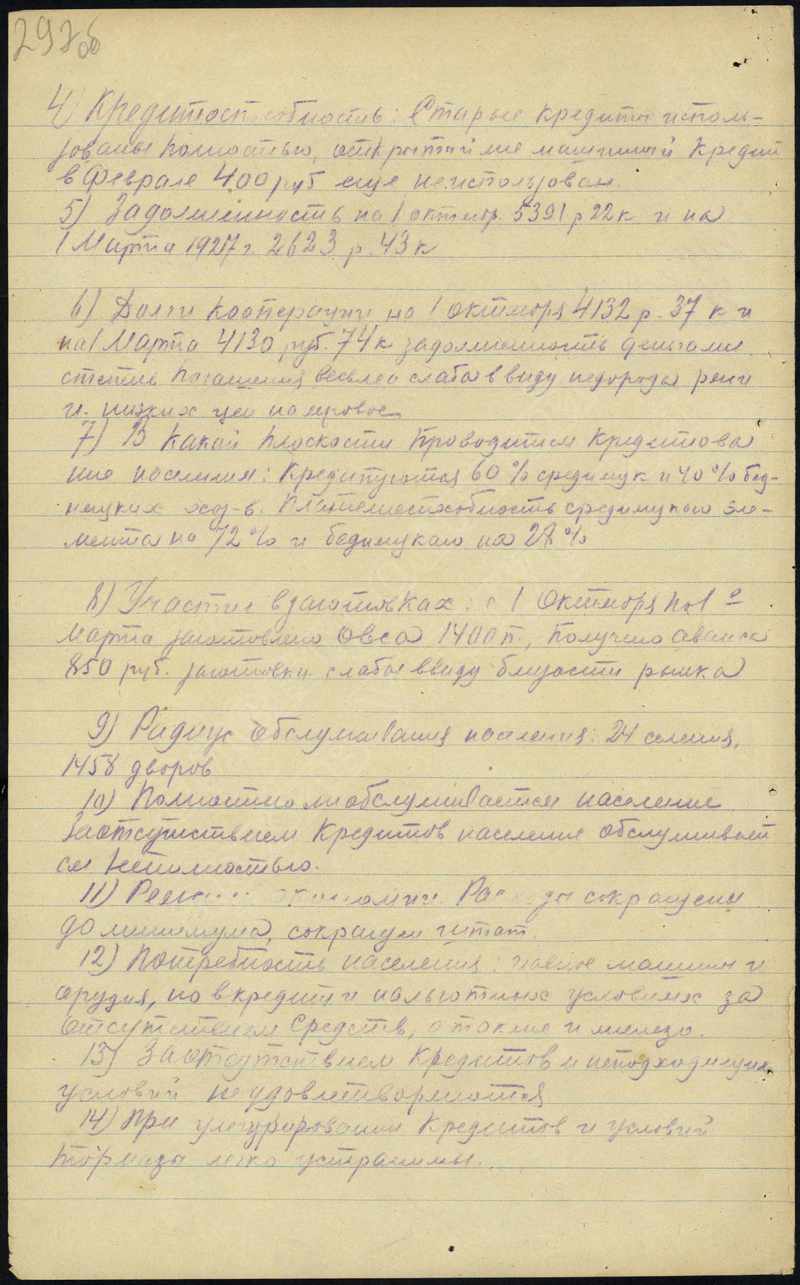 297об
4) Кредитоспособность: Старые кредиты исполь-
зованы полностью, открытый же машинный кредит
в феврале 400 руб еще неиспользован.
5) Задолженность на 1 октябр. 5391 р 22 к и на
1 Марта 1927 г. 2623 р. 43 к
6) Долги кооперации на 1 октября 4132 р. 37 к и
на 1 Марта 4130 руб. 74 к задолженность деньгами
степень погашения весьма слабая ввиду недорода ржи
и низких цен на яровое
7) В какой плоскости проводится кредитова
ние населения: Кредитуются 60% средняцк и 40% бед-
няцких хоз-в. Платежеспособность средняцкого эле-
мента на 72% и бедняцкого на 28%
8) Участие в заготовках: с 1 Октября по 1е
марта заготовлено овса 1400 п., получено аванса
850 руб. заготовки слабые ввиду близости рынка
9) Радиус обслуживания населения: 24 селения,
1458 дворов
10) Полностью ли обслуживается население
За отсутствием кредитов население обслуживает
ся неполностью.
11) Режим экономии. Расходы сокращены
до минимума, сокращен штат.
12) Потребность населения: машин и
орудия, но в кредит и на льготных условиях за
отсутствием средств, а также и железо.
13) За отсутствием кредитов и неподходящих
условий неудовлетворяются
14) При урегулировании кредитов и условий
тормаза легко устранимы.